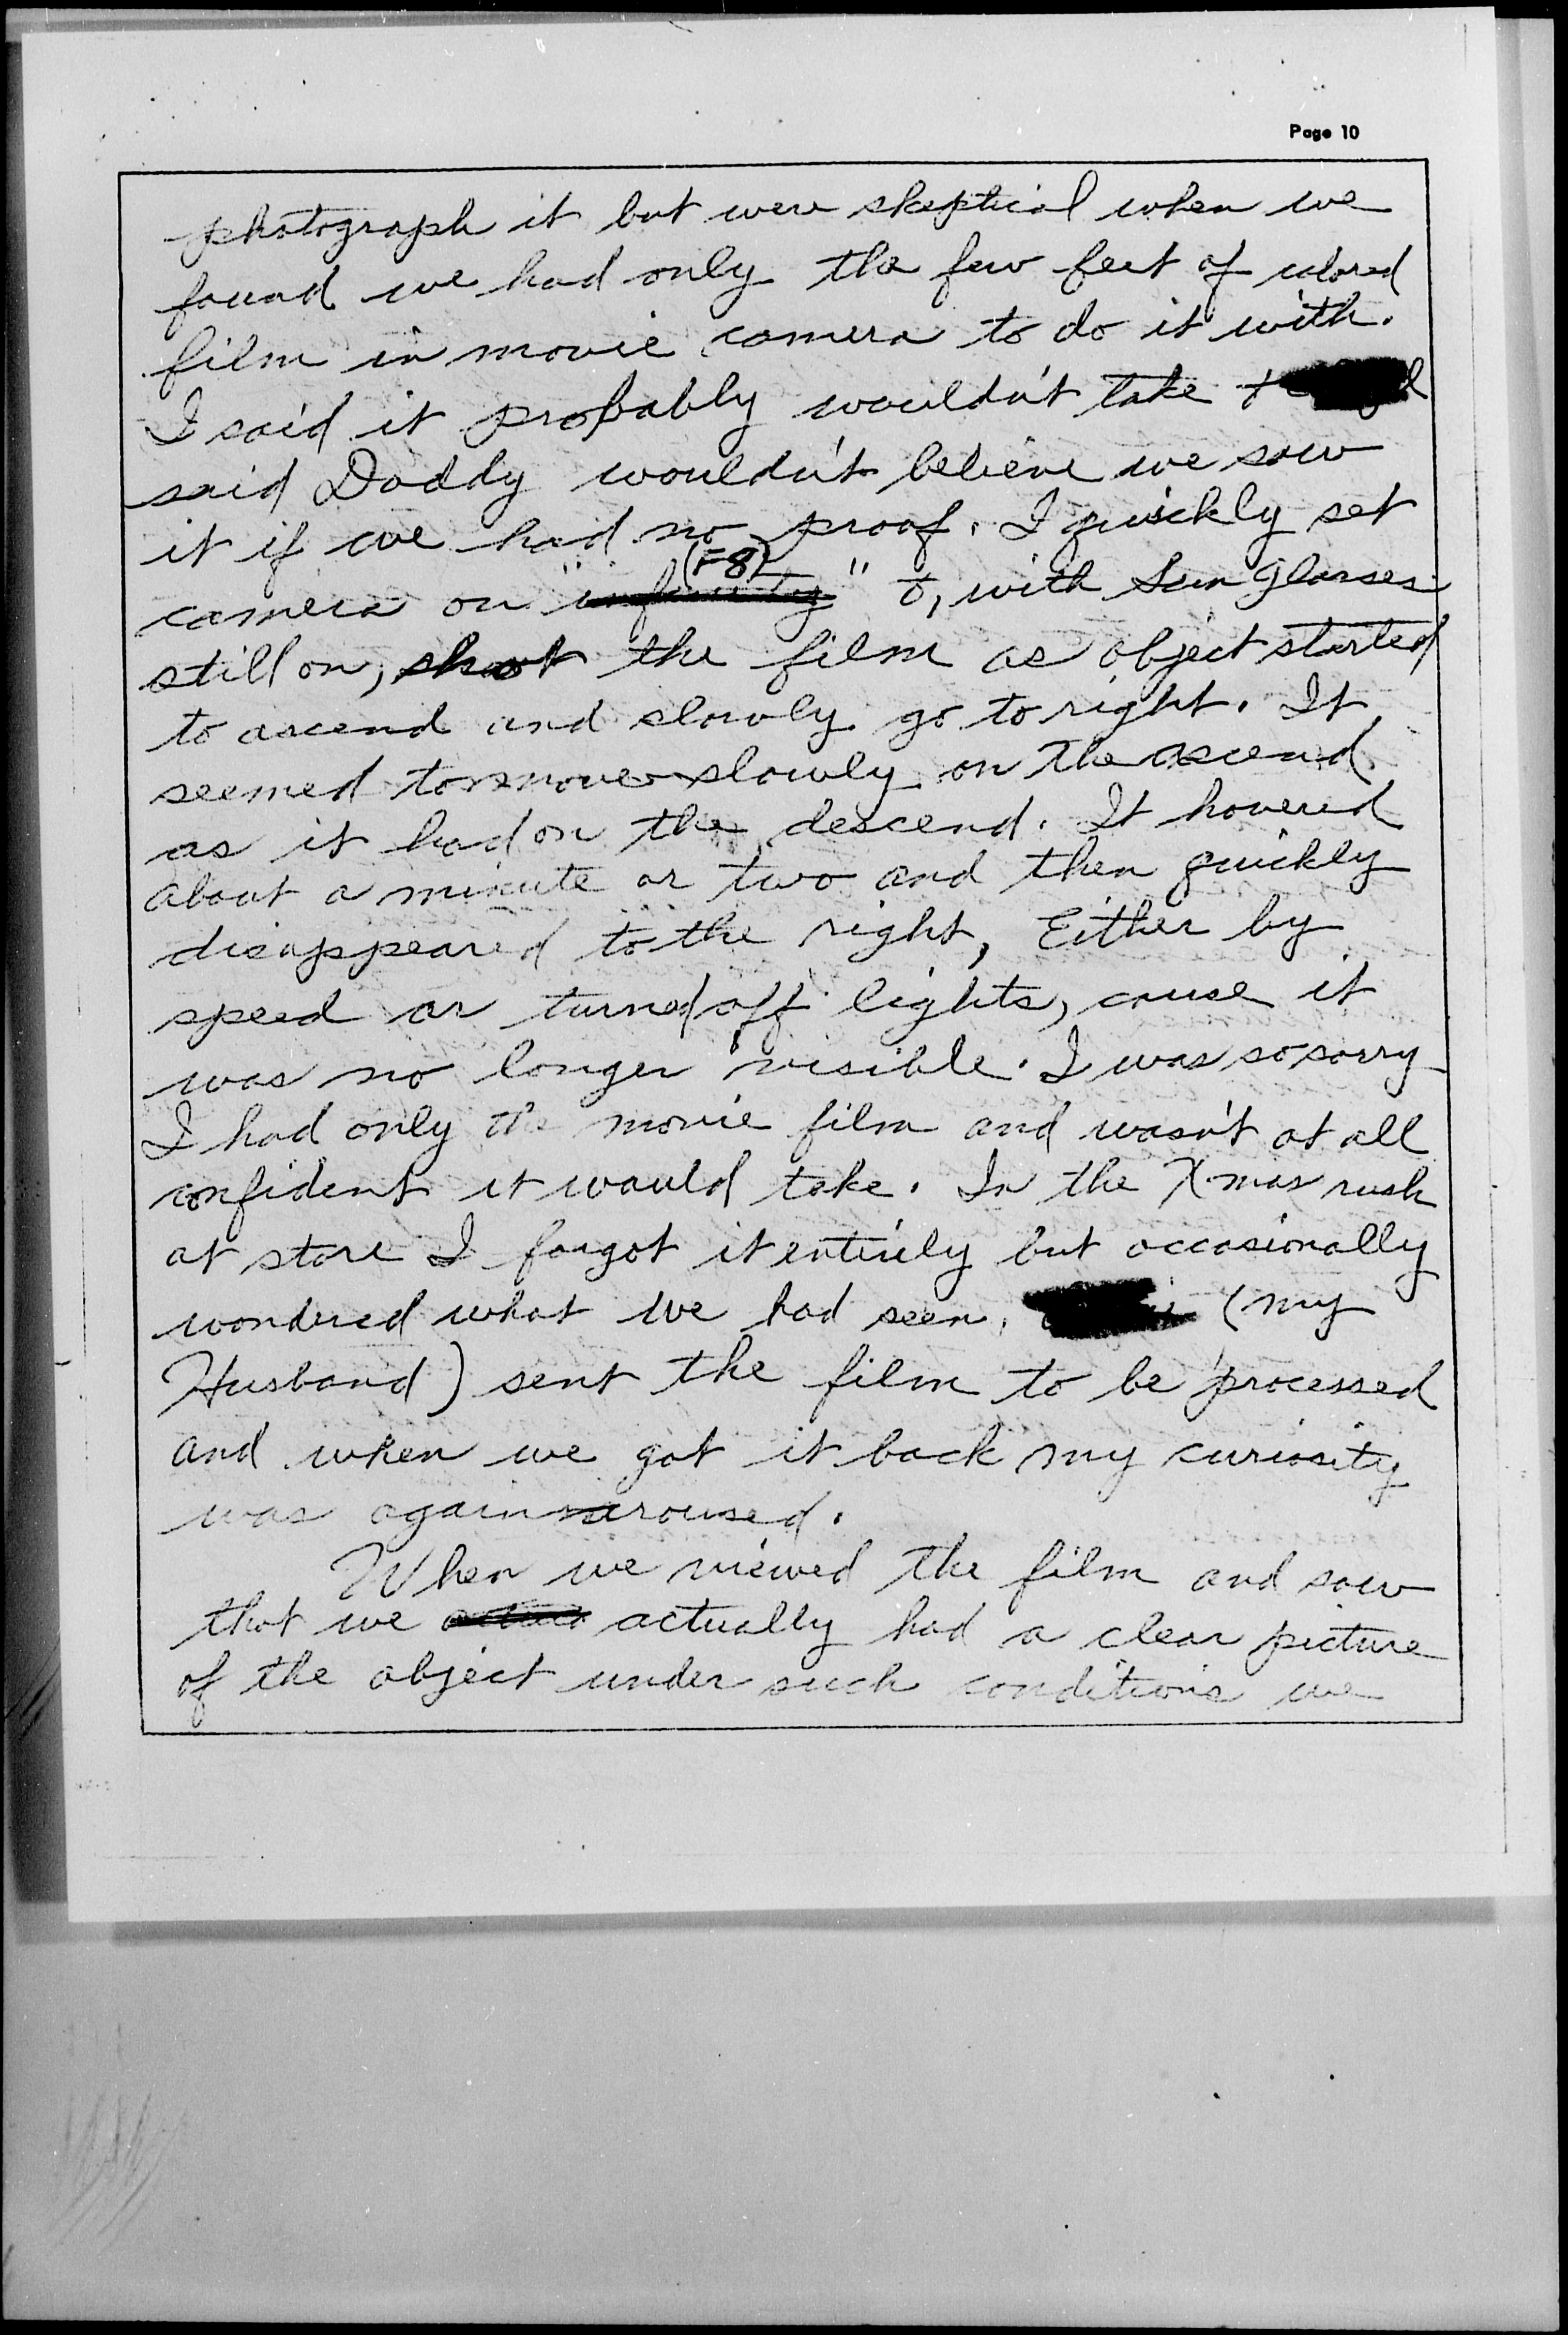 Page 10
photograph it but were skeptical when we
found we had only the few feet of colored
film in movie camera to do it with.
I said it probably wouldn't take +
said Daddy wouldn't believe we saw
it if we had no proof. I quickly set
(F8)
camera on "infinity" +, with Sun Glasses
still on, shot the film as object started
to ascend and slowly go to right. It
seemed to move slowly on the ascend
as it had on the descend. It hovered
about a minute or two and then quickly
disappeared to the right, Either by
speed or turned off lights, cause it
was no longer visible. I was so sorry
I had only the movie film and wasn't at all
confident it would take. In the X-mas rush
at store I forgot it entirely but occasionally
wondered what we had seen. (my
Husband) sent the film to be processed
and when we got it back my curiosity
was again aroused.
When we viewed the film and saw
that we actually had a clear picture
of the object under such conditions we